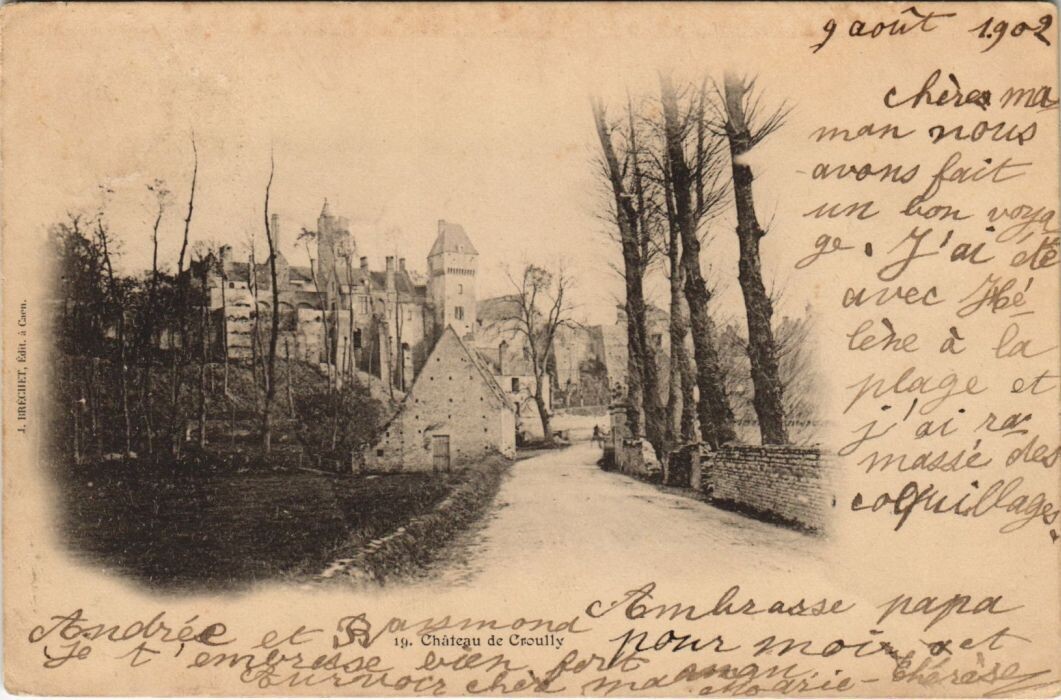 9 août 1902
chère ma
man nous
avons fait
un bon voya
ge. J'ai été
avec Hé
lène à la
plage et
j'ai ra
massé des
coquillages.
Ambrasse papa
pour moi, et
Andrée et Raismond
je t'embrasse bien fort
Aurvoir chèr maman
Marie-Thérèse
19. Château de Croully
J. BRÉCHET, Édit. à Caen.